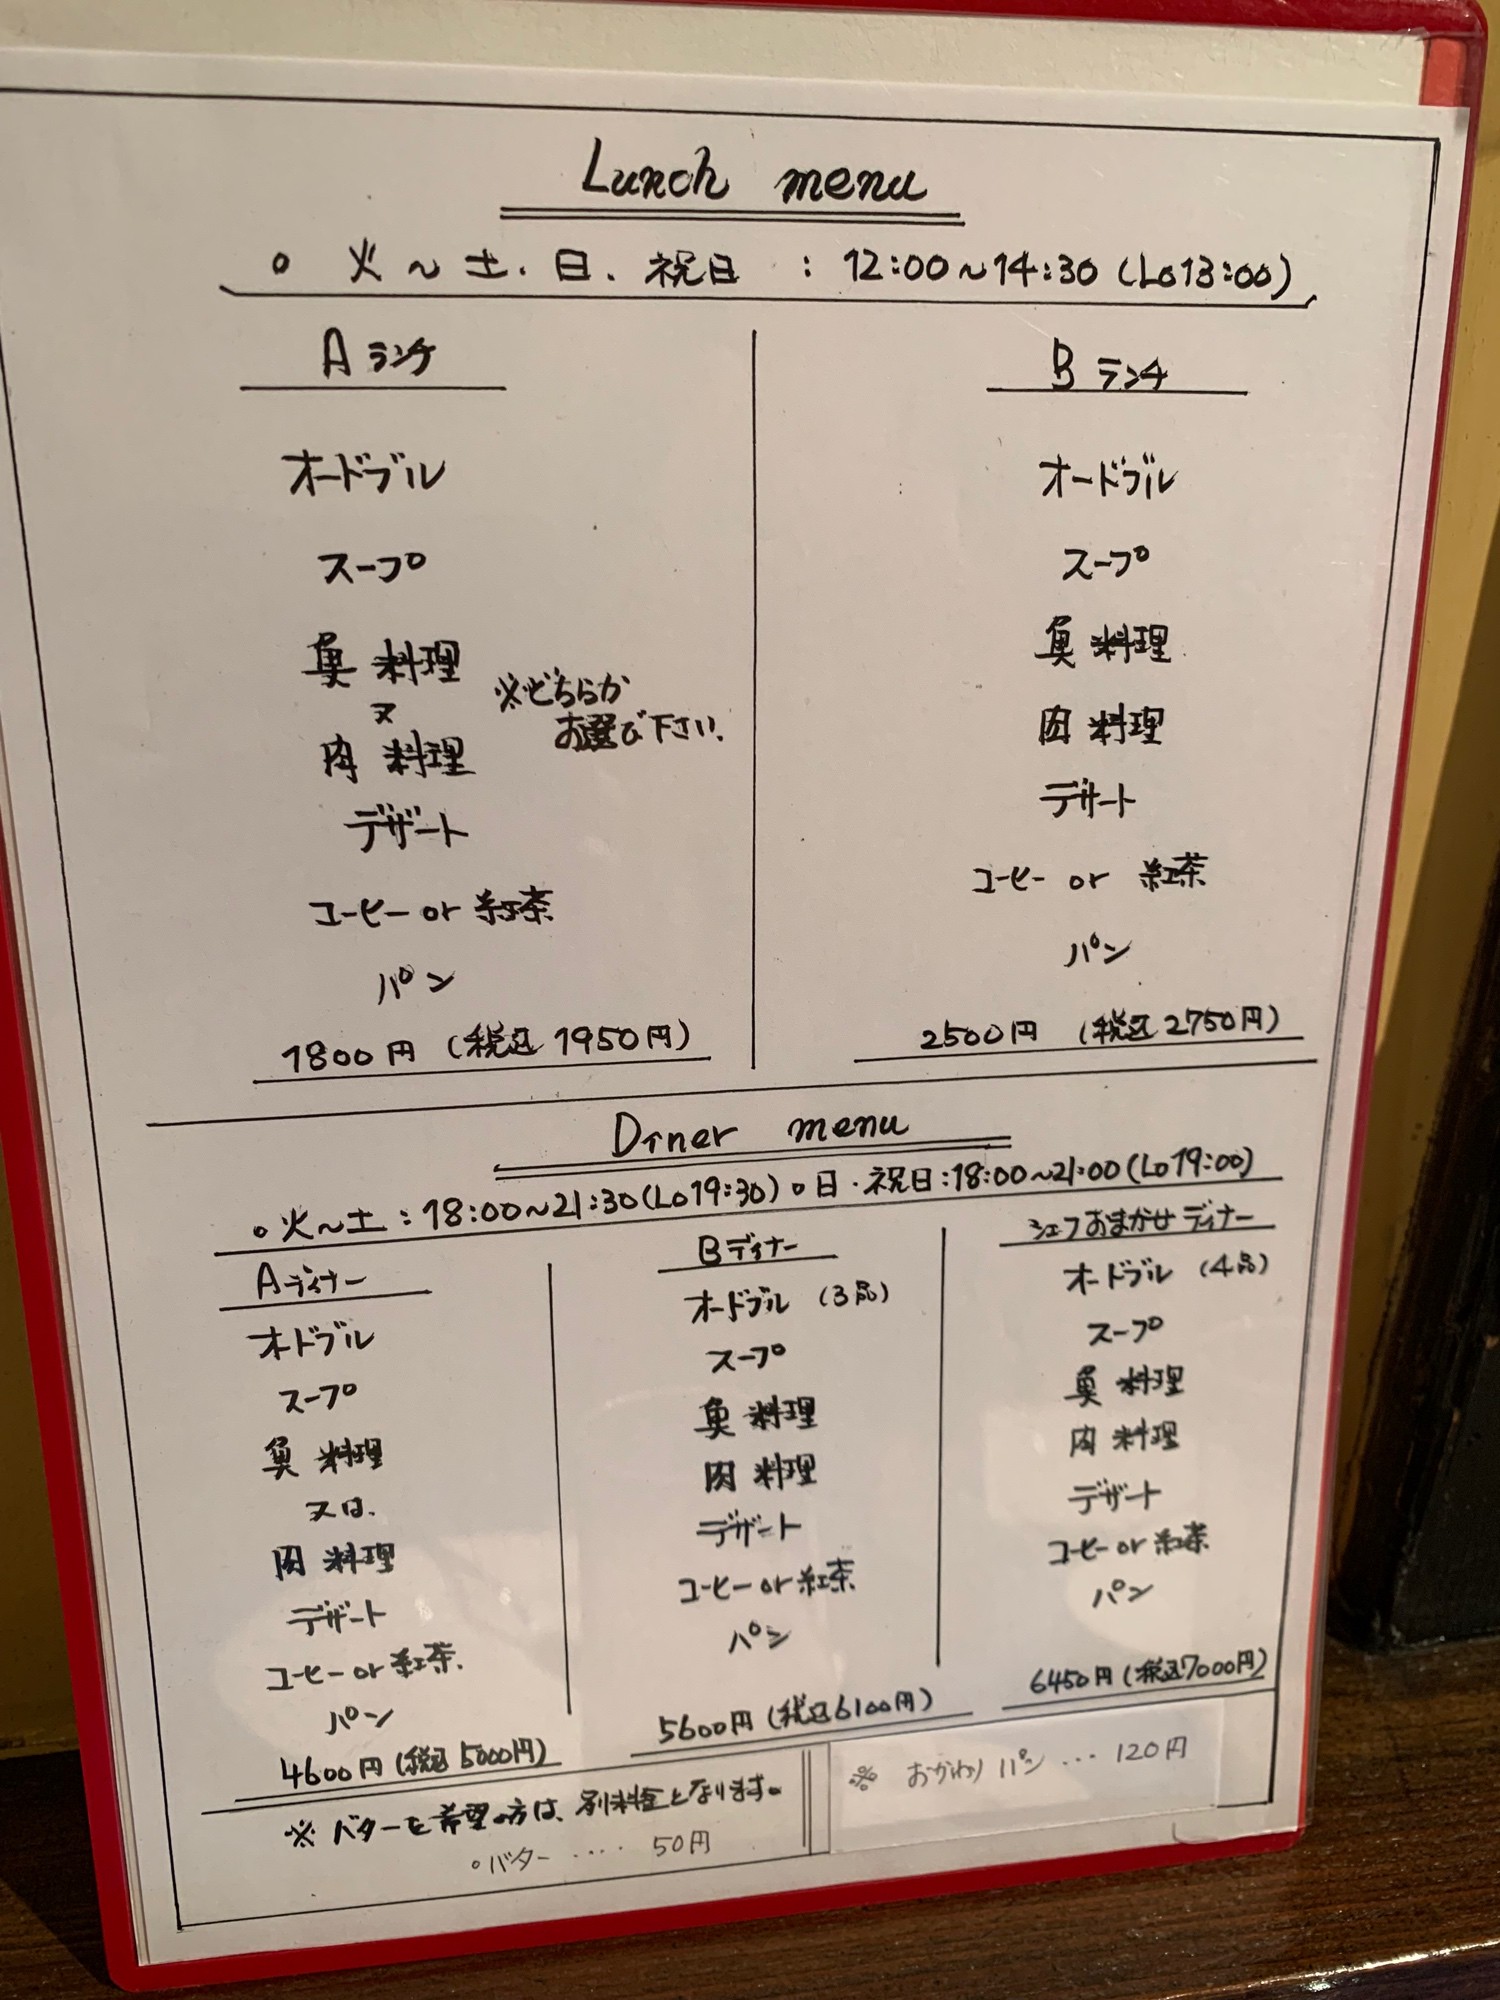 Lunch menu
○ 火〜土.日.祝日 : 12:00〜14:30 (Lo13:00)
Aランチ
オードブル
スープ
魚料理
又
肉料理
※どちらか
お選び下さい.
デザート
コーヒー or 紅茶
パン
1800円 (税込 1950円)
Bランチ
オードブル
スープ
魚料理
肉料理
デザート
コーヒー or 紅茶
パン
2500円 (税込 2750円)
Diner menu
○火〜土 : 18:00〜21:30(Lo19:30) ○日・祝日:18:00〜21:00(Lo19:00)
Aディナー
オードブル
スープ
魚料理
又は.
肉料理
デザート
コーヒー or 紅茶.
パン
4600円(税込 5000円)
Bディナー
オードブル (3品)
スープ
魚料理
肉料理
デザート
コーヒー or 紅茶
パン
5600円(税込6100円)
シェフおまかせディナー
オードブル (4品)
スープ
魚料理
肉料理
デザート
コーヒー or 紅茶
パン
6450円(税込7000円)
※ バターを希望の方は、別料金となります。
○バター ‥‥ 50円
※ おかわりパン … 120円